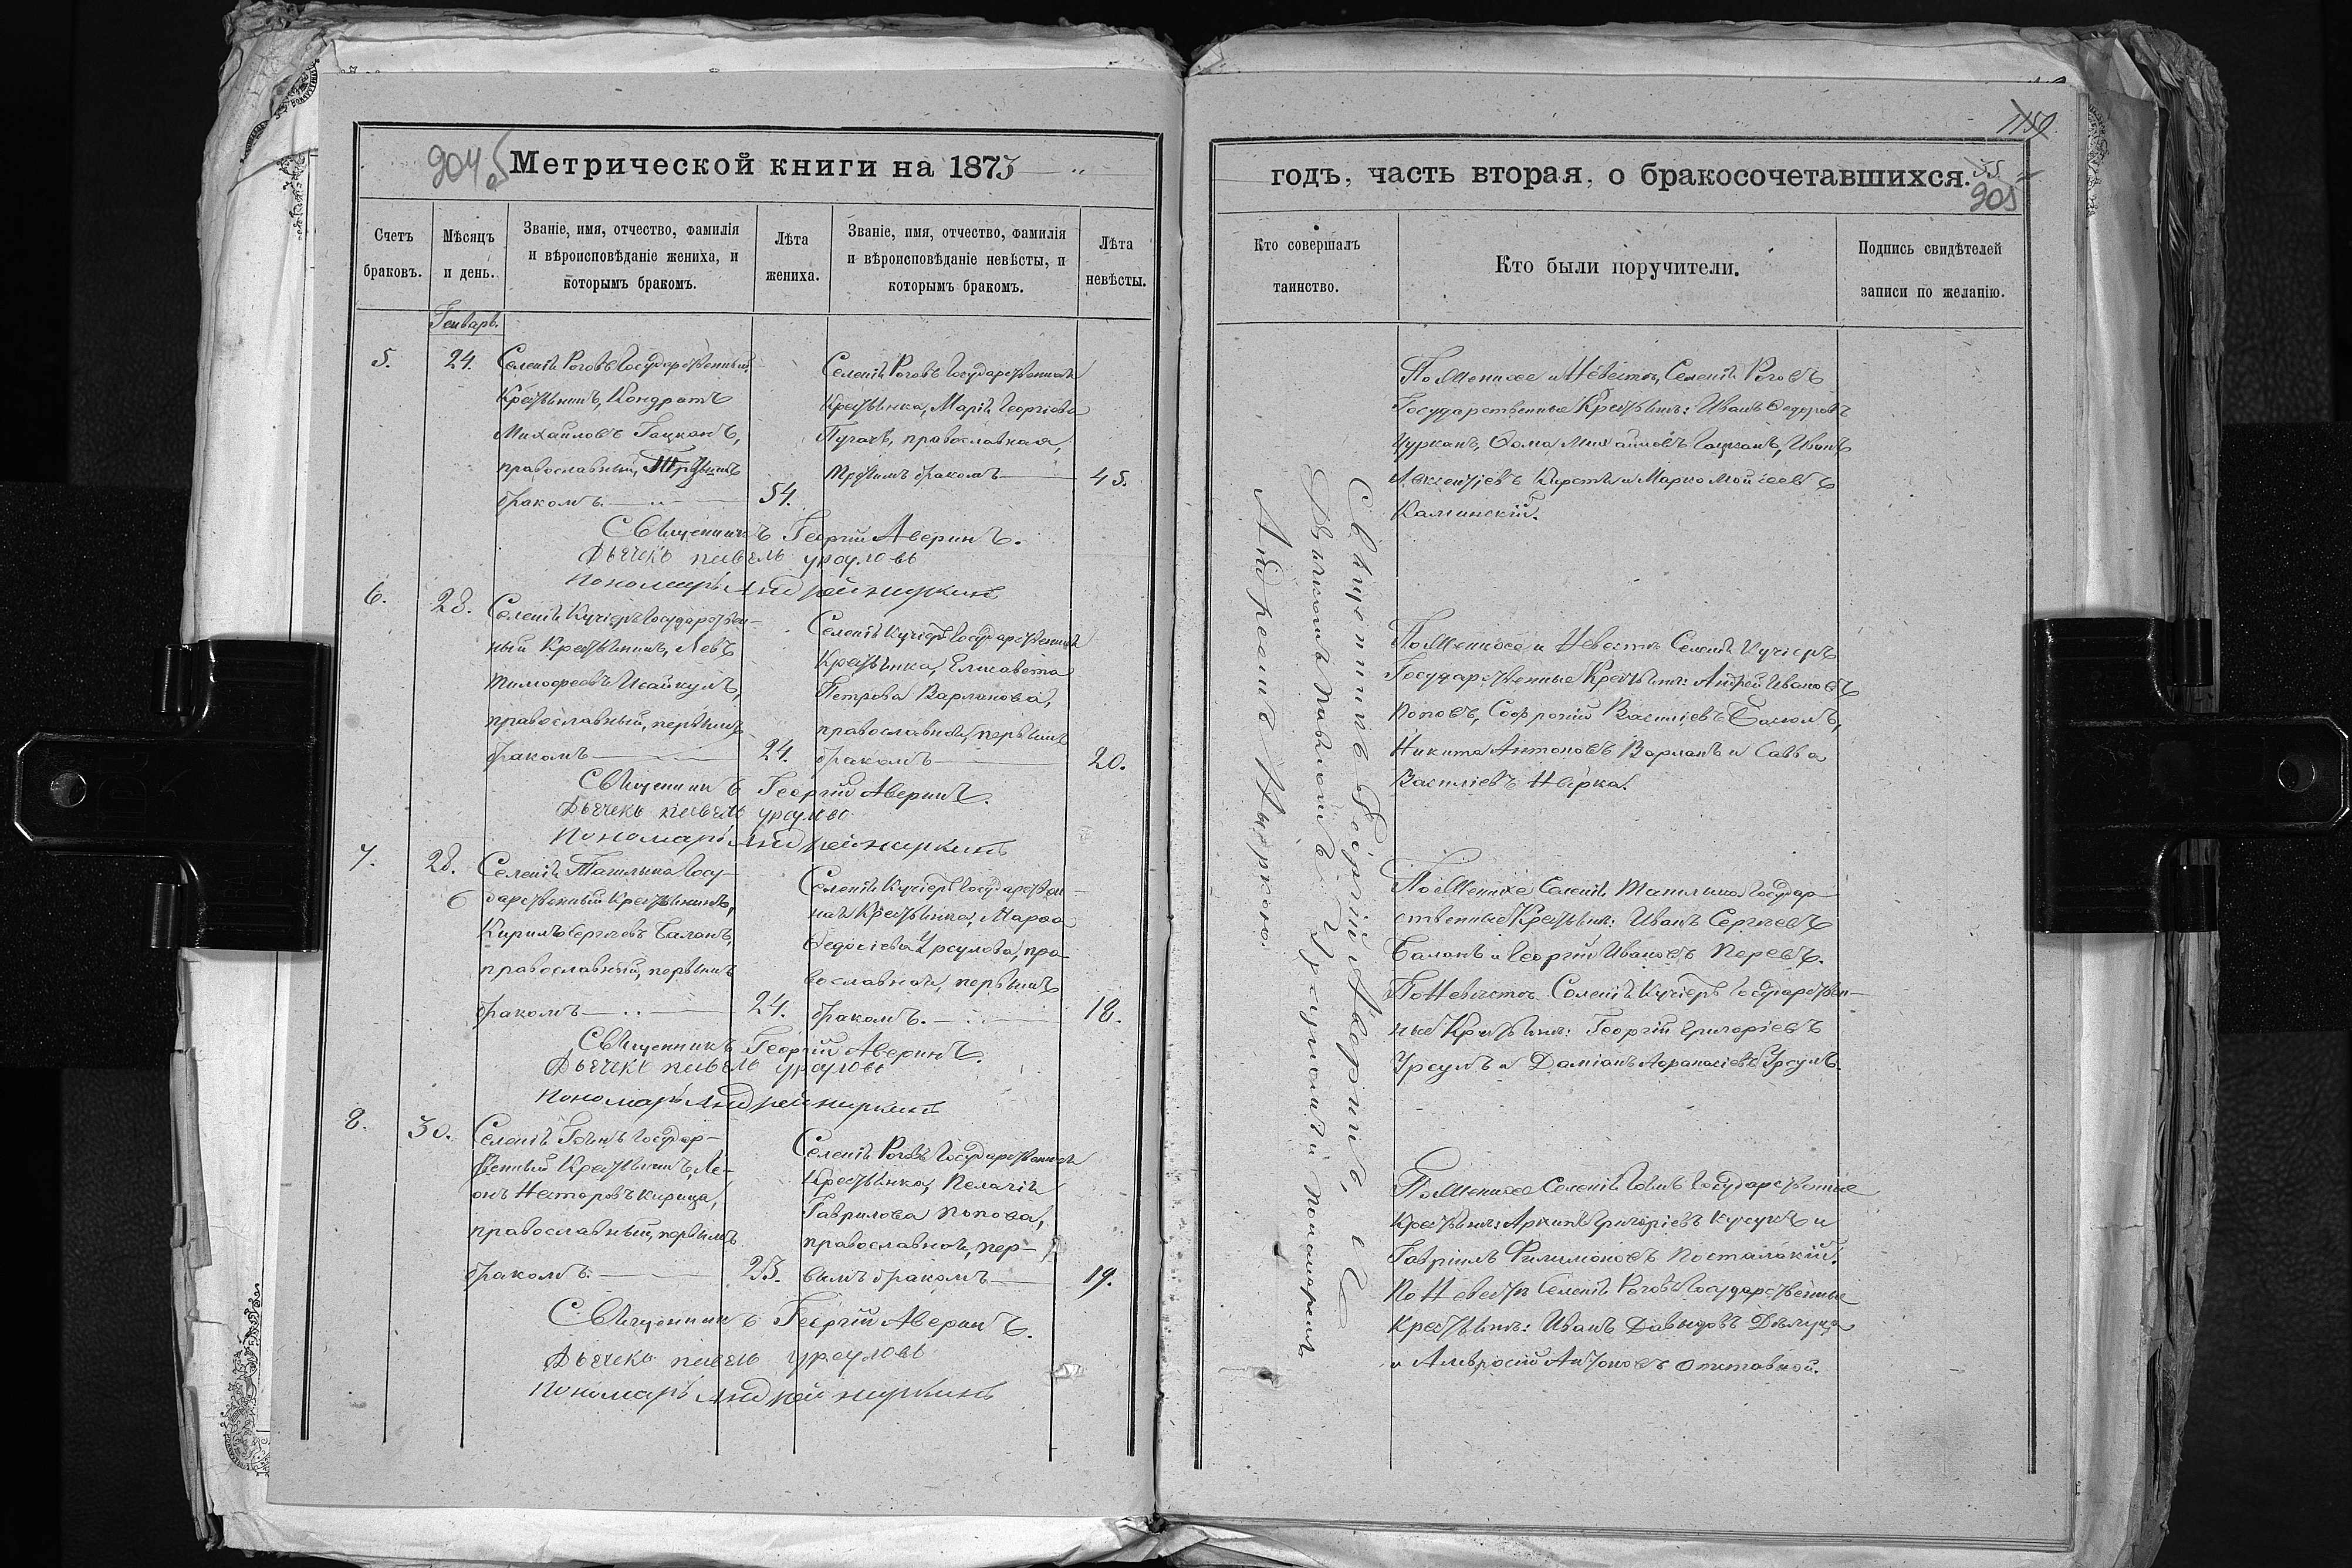 904 об
Метрической книги на 1873
Счетъ браковъ.
Мѣсяцъ и день.
Званіе, имя, отчество, фамилія
и вѣроисповѣданіе жениха, и
которымъ бракомъ.
Лѣта жениха.
Званіе, имя, отчество, фамилія
и вѣроисповѣданіе невѣсты, и
которымъ бракомъ.
Лѣта невѣсты.
Генварь
5.
24.
Селенія Роговъ Государственный
Крестьянинъ, Кондратъ
Михайловъ Гацканъ,
православный, Третьимъ
бракомъ
54.
Селенія Роговъ Государственная
Крестьянка, Марія Георгіева
Пугачъ, православная,
третьимъ бракомъ
45.
Священникъ Георгій Аверинъ.
Дьячекъ павелъ урсуловъ
пономарь Андрей
6.
28.
Селенія Кучіеръ Государствен-
ный Крестьянинъ, Левъ
Тимофеевъ Исайкулъ,
православный, первымъ
бракомъ
24.
Селенія Кучіеръ Государственная
Крестьянка, Елисавета
Петрова Варланова,
православная, первымъ
бракомъ
20.
Священникъ Георгій Аверинъ.
Дьячекъ павелъ урсуловъ
Пономарь Андрей
7.
28.
Селенія Ташлыка Госу-
дарственный Крестьянинъ,
Кирилъ Сергѣевъ Баланъ,
православный, первымъ
бракомъ
24.
Селенія Кучіеръ Государствен-
ная Крестьянка, Марѳа
Ѳедосіева Урсулова, пра-
вославная, первымъ
бракомъ.
18.
Священникъ Георгій Аверинъ.
Дьячекъ павелъ урсуловъ
пономарь Андрей
8.
30.
Селенія Гоянъ Государ-
ственный Крестьянинъ, Ле-
онъ Несторовъ Кирица,
православный, первымъ
бракомъ.
23.
Селенія Роговъ Государственная
Крестьянка, Пелагія
Гаврилова Попова,
православная, пер-
вымъ бракомъ
19.
Священникъ Георгій Аверинъ.
Дьячекъ павелъ урсуловъ
пономарь Андрей
1150
годъ, часть вторая, о бракосочетавшихся.
55
905
Кто совершалъ таинство.
Кто были поручители.
Подпись свидѣтелей
записи по желанію.
Священникъ Георгій Аверинъ, съ
Дьячкомъ Павломъ Урсуломъ и пономаремъ
Андреемъ Ныркою.
По Женихѣ и Невѣстѣ, Селенія Роговъ
Государственные Крестьяне: Иванъ Ѳедоровъ
Цурканъ, Ѳома Михайловъ Гацканъ, Иванъ
Авксентіевъ Кирстя и Марко Мойсеевъ
Каминскій.
По Женихѣ и Невестѣ Селенія Кучіеръ
Государственные Крестьяне: Андрей Ивановъ
Поповъ, Софроній Василіевъ
Никита Антоновъ Варланъ и Савва
Василіевъ Нырка.
По Женихѣ Селенія Ташлыка Государ-
ственные Крестьяне: Иванъ Сергѣевъ
Баланъ и Георгій Ивановъ Перевъ.
По Невѣстѣ Селенія Кучіеръ Государствен-
ные Крестьяне: Георгій Григоріевъ
Урсулъ и Даміанъ Аѳанасіевъ Урсулъ.
По Женихѣ Селенія Гоянъ Государственные
Крестьяне: Архипъ Григоріевъ Кучукъ и
Гавріилъ Филимоновъ Посталакій.
По Невестѣ Селенія Роговъ Государственные
Крестьяне: Иванъ Давыдовъ
и Амвросій Антоновъ Отставной.